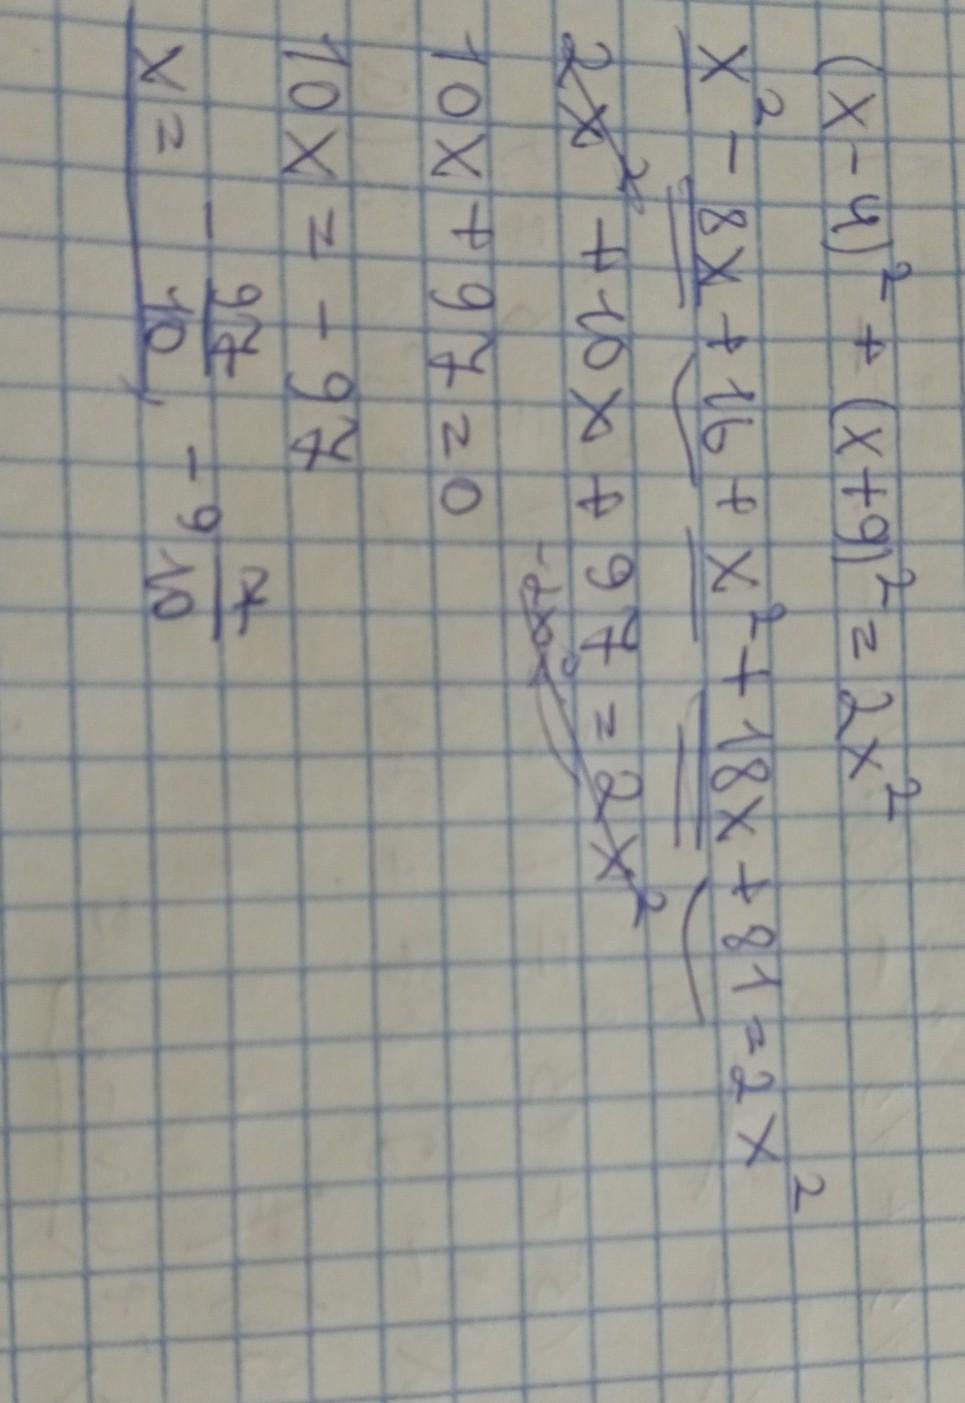 (x-4)² + (x+9)² = 2x²
x² - 8x + 16 + x² + 18x + 81 = 2x²
2x² + 10x + 97 = 2x²
-2x²
10x + 97 = 0
10x = - 97
x = - 97/10 - 9 7/10